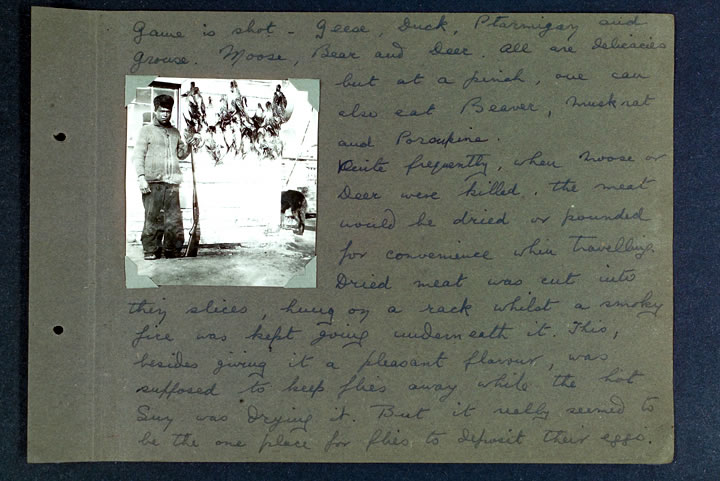 Game is shot - Geese, Duck, Ptarmigan and
grouse. Moose, Bear and Deer. All are delicacies
but at a pinch, one can
also eat Beaver, Muskrat
and Porcupine.
Quite frequently, when Moose or
Deer were killed, the meat
would be dried or pounded
for convenience when travelling.
Dried meat was cut into
thin slices, hung on a rack whilst a smoky
fire was kept going underneath it. This,
besides giving it a pleasant flavour, was
supposed to keep flies away while the hot
Sun was drying it. But it really seemed to
be the one place for flies to deposit their eggs.